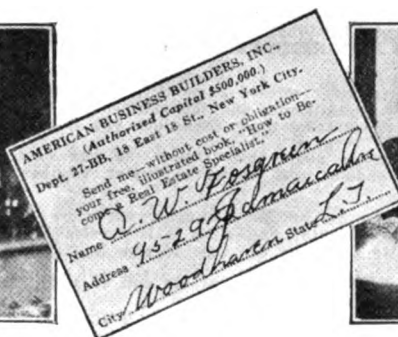 AMERICAN BUSINESS BUILDERS, INC.,
(Authorized Capital $500,000.)
Dept. 27-BB, 18 East 18 St., New York City.
Send me—without cost or obligation—
your free, illustrated book, "How to Be-
come a Real Estate Specialist."
Name D. W. Fosgrun
Address 95-29
City Woodhaven State L.I